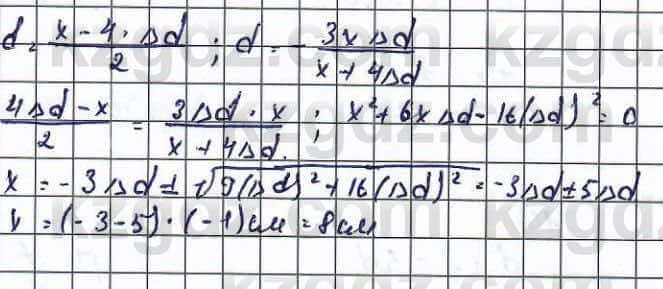 d = (x - 4 · Δd)/2 ; d = - 3xΔd/(x + 4Δd)
(4Δd - x)/2 = 3Δd · x/(x + 4Δd) ; x² + 6xΔd - 16(Δd)² = 0
x = -3Δd ± √(9(Δd)² + 16(Δd)²) = -3Δd ± 5Δd
x = (-3-5) · (-1)см = 8см